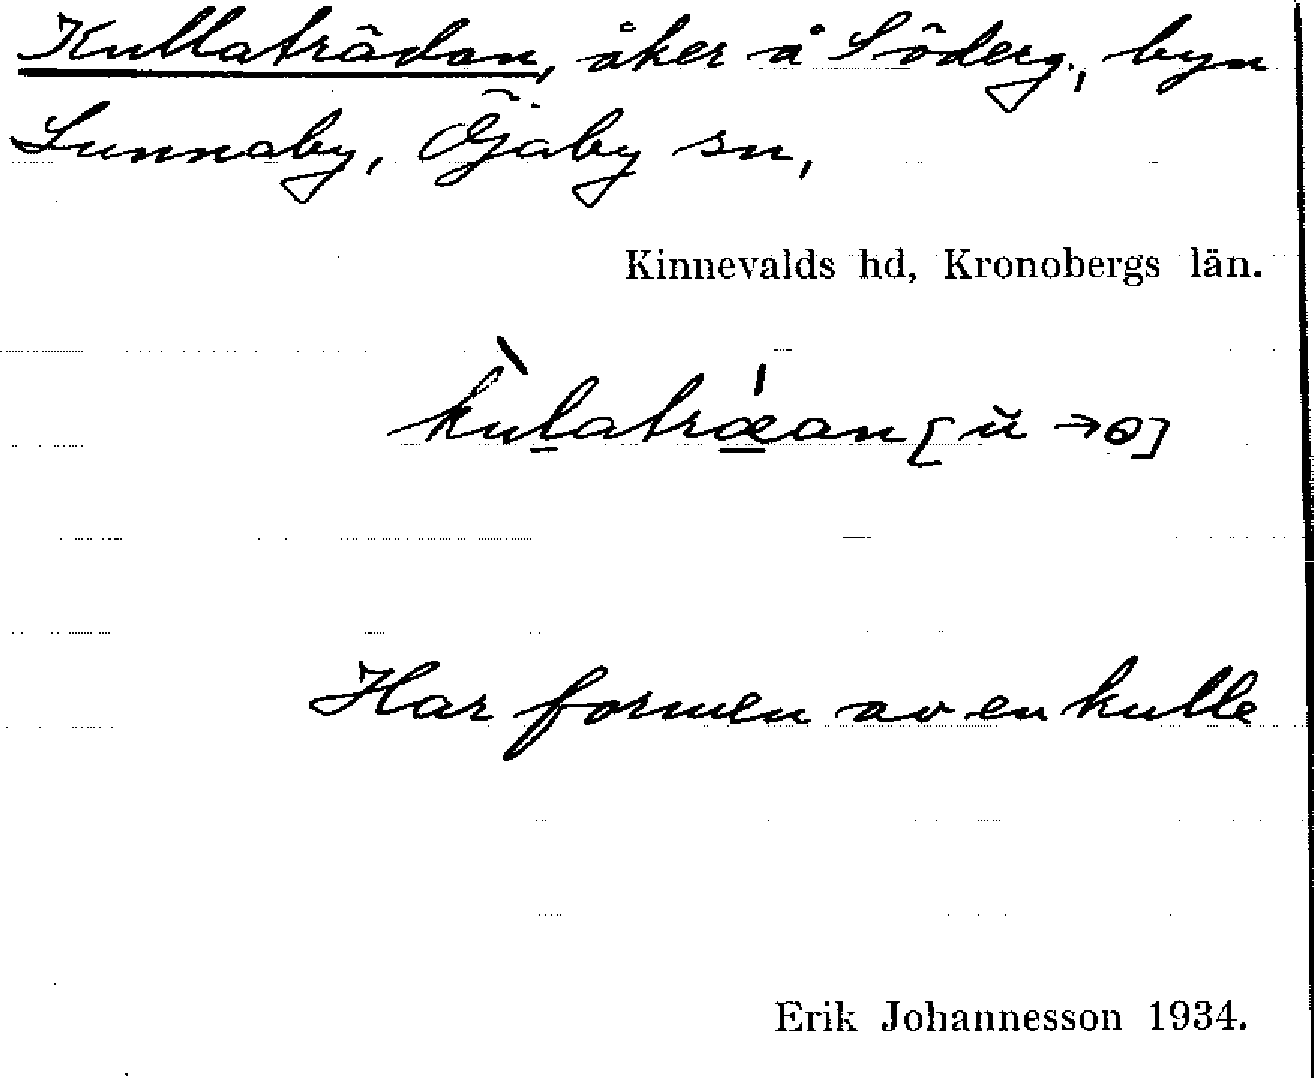 Kullaträdan, åker å Söderg., byn
Lunnaby, Öjaby sn,
Kinnevalds hd, Kronobergs län.
kùlatræ̍an [ŭ → ɵ]
Har formen av en kulle
Erik Johannesson 1934.